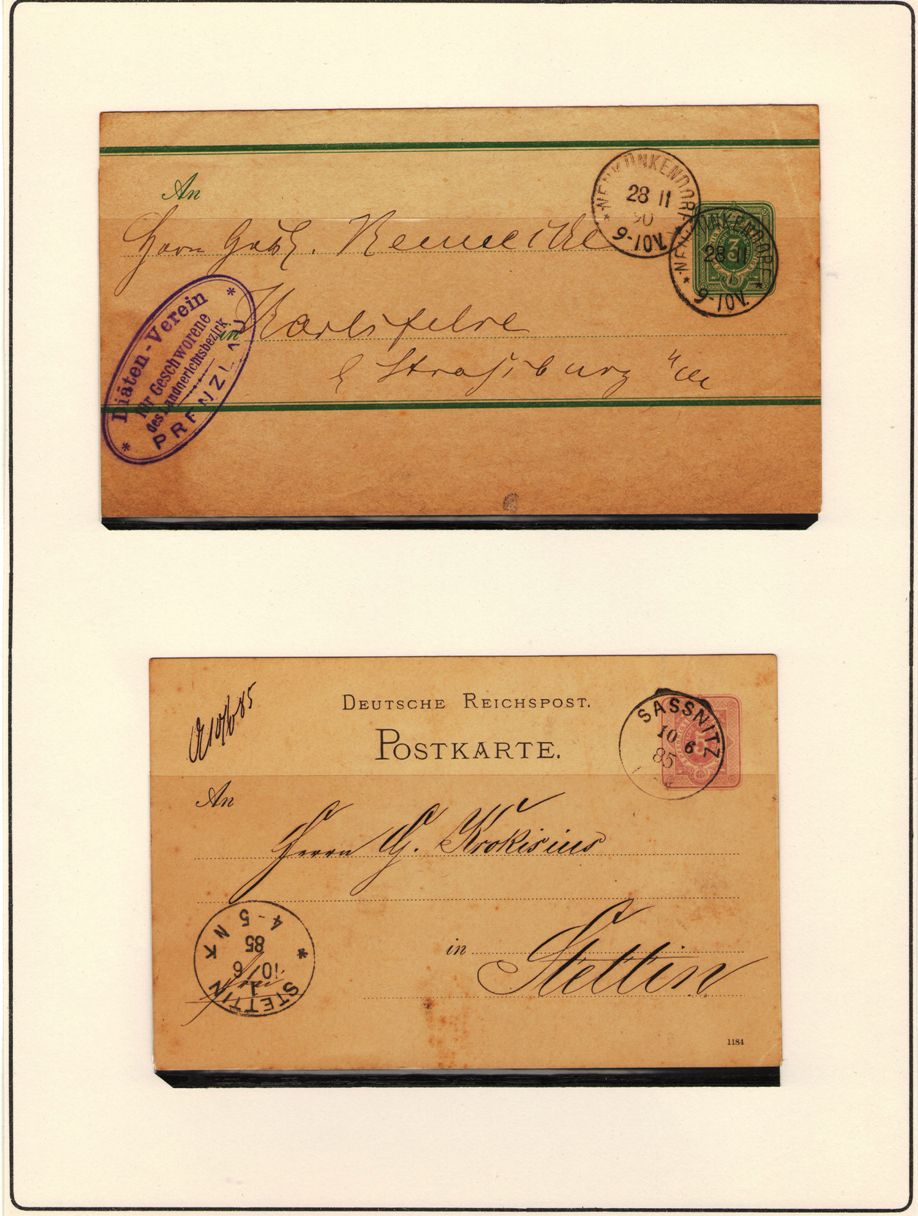 An
Herrn Gutsb. Rennecke
in Karlsfelde
b Straßburg U/M
NEUKÜNKENDORF
28 11
90
9-10V.
NEUKÜNKENDORF
28 11
9-10V.
3
* Diäten-Verein *
für Geschworene
des Landgerichtsbezirk
PRENZLAU
10/6 85
DEUTSCHE REICHSPOST.
POSTKARTE.
SASSNITZ
10 6
85
5
An
Herrn G. Krokisius
in Stettin
STETTIN
1
10 6
85
4-5 N
*
K
1184